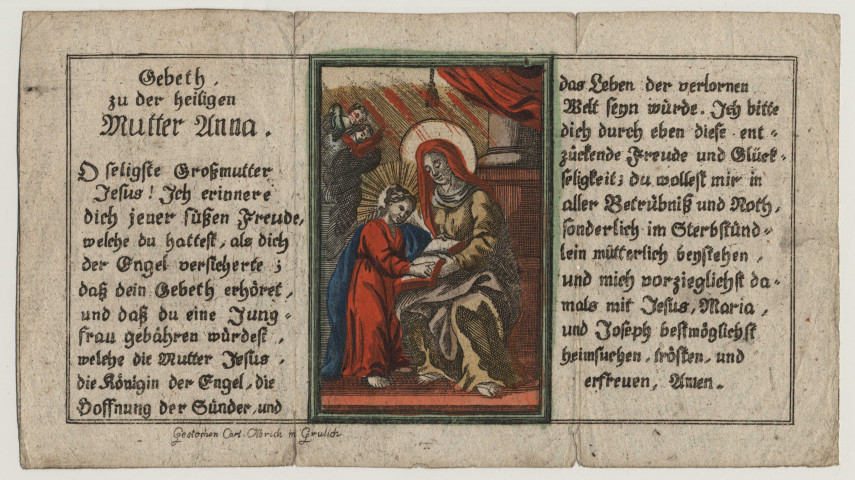 Gebeth,
zu der heiligen
Mutter Anna.
O seligste Großmutter
Jesus! Ich erinnere
dich jener süßen Freude,
welche du hattest, als dich
der Engel versicherte;
daß dein Gebeth erhöret,
und daß du eine Jung-
frau gebähren würdest,
welche die Mutter Jesus,
die Königin der Engel, die
Hoffnung der Sünder, und
das Leben der verlornen
Welt seyn würde. Ich bitte
dich durch eben diese ent-
zückende Freude und Glück-
seligkeit; du wollest mir in
aller Betrübniß und Noth,
sonderlich im Sterbstünd-
lein mütterlich beystehen,
und mich vorzieglichst da-
mals mit Jesus, Maria,
und Joseph bestmöglichst
heimsuchen, trösten, und
erfreuen, Amen.
Gestochen Carl Olbrich in Grulich